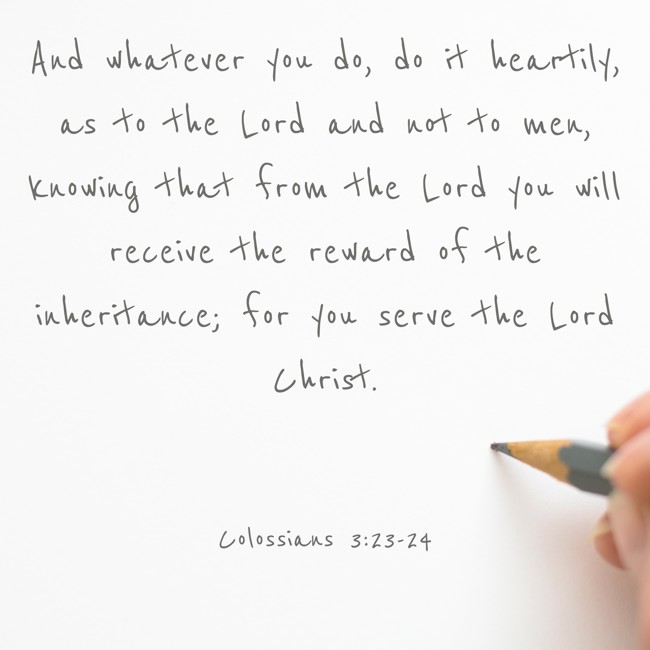 And whatever you do, do it heartily,
as to the Lord and not to men,
knowing that from the Lord you will
receive the reward of the
inheritance; for you serve the Lord
Christ.
Colossians 3:23-24